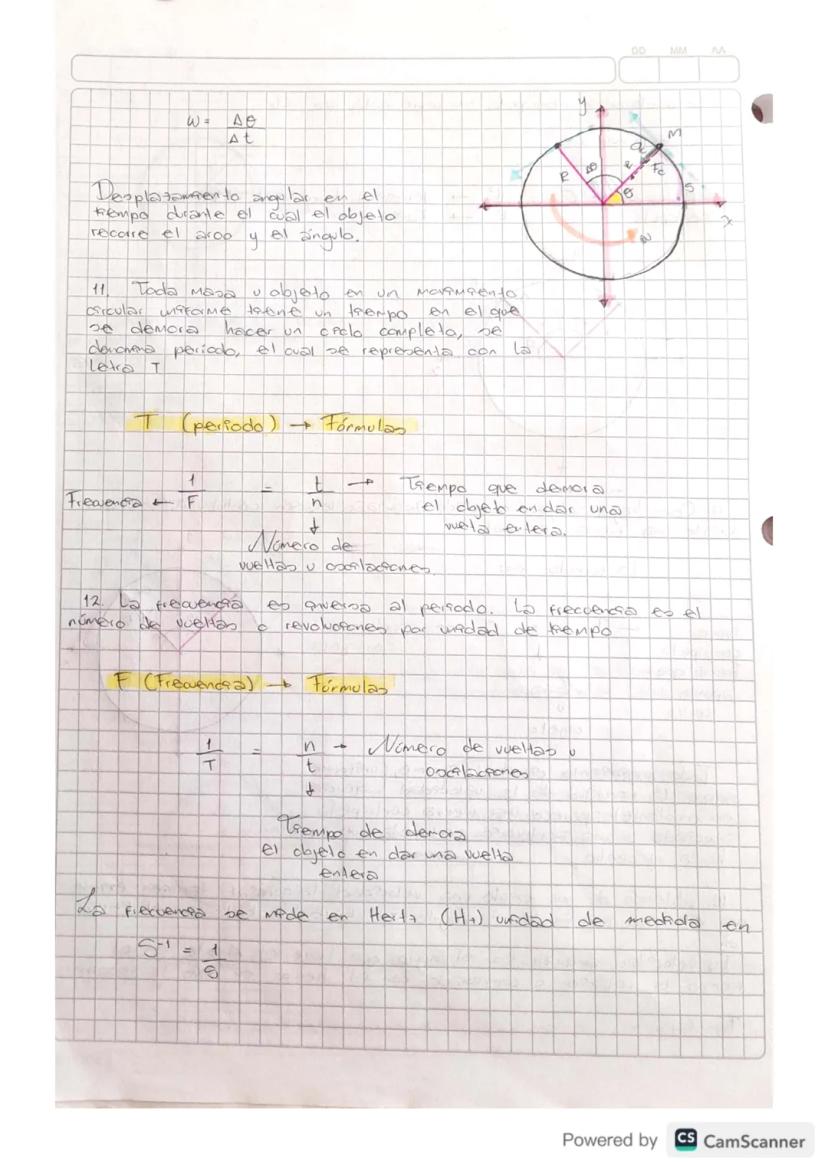 DD MM AA
ω = Δθ
Δt
y
M
ac
R
Δθ
R
Fc
θ
S
x
W
Desplazamiento angular en el
tiempo durante el cual el objeto
recorre el arco y el ángulo.
11. Toda masa u objeto en un movimiento
circular uniforme tiene un tiempo en el que
se demora hacer un ciclo completo, se
denomina periodo, el cual se representa con la
letra T
T (periodo) → Fórmulas
Frecuencia ← 1/F = t/n → Tiempo que demora
el objeto en dar una
vuelta entera.
↓
Número de
vueltas u oscilaciones.
12. La frecuencia es inversa al periodo. La freccuencia es el
número de vueltas o revoluciones por unidad de tiempo
F (Frecuencia) → Fórmulas
1/T = n/t → Número de vueltas u
oscilaciones
↓
Tiempo de demora
el objeto en dar una vuelta
entera
La frecuencia se mide en Hertz (Hz) unidad de medida en
S⁻¹ = 1/S
Powered by CS CamScanner